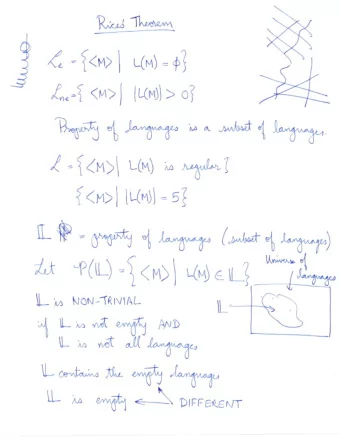 Rice's Theorem
Le = {<M> | L(M) = ϕ}
Lne = {<M> | |L(M)| > 0}
Property of languages is a subset of languages.
L = {<M> | L(M) is regular}
{<M> | |L(M)| = 5}
𝕃 = property of languages (subset of languages)
Let P(𝕃) = {<M> | L(M) ∈ 𝕃}
Universe of
languages
𝕃
𝕃 is NON-TRIVIAL
if 𝕃 is not empty AND
𝕃 is not all languages
𝕃 contains the empty language
𝕃 is empty
DIFFERENT